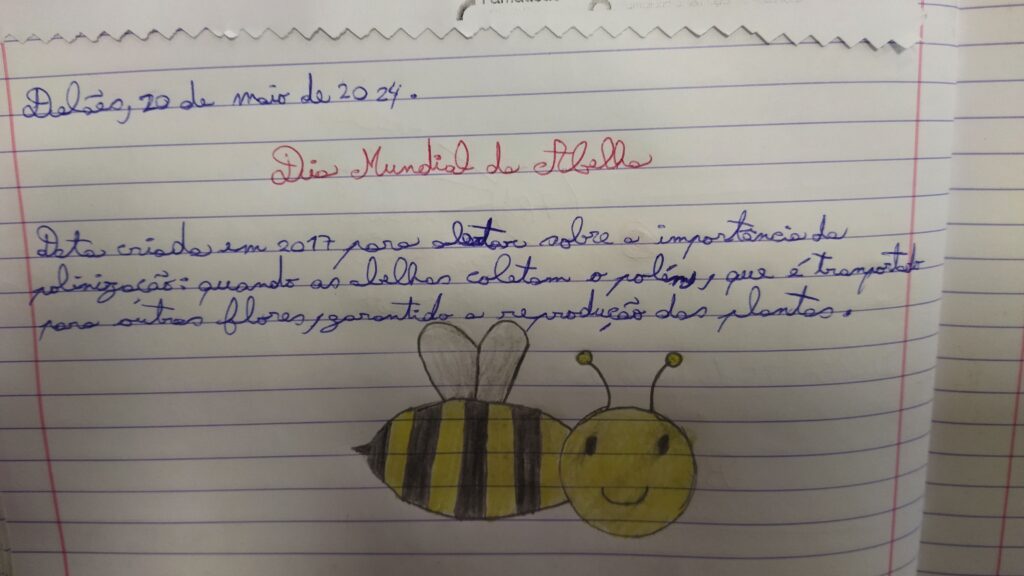 Delães, 20 de maio de 2024.
Dia Mundial da Abelha
Data criada em 2017 para alertar sobre a importância da
polinização: quando as abelhas coletam o pólen, que é tranportado
para outras flores, garantido a reprodução das plantas.